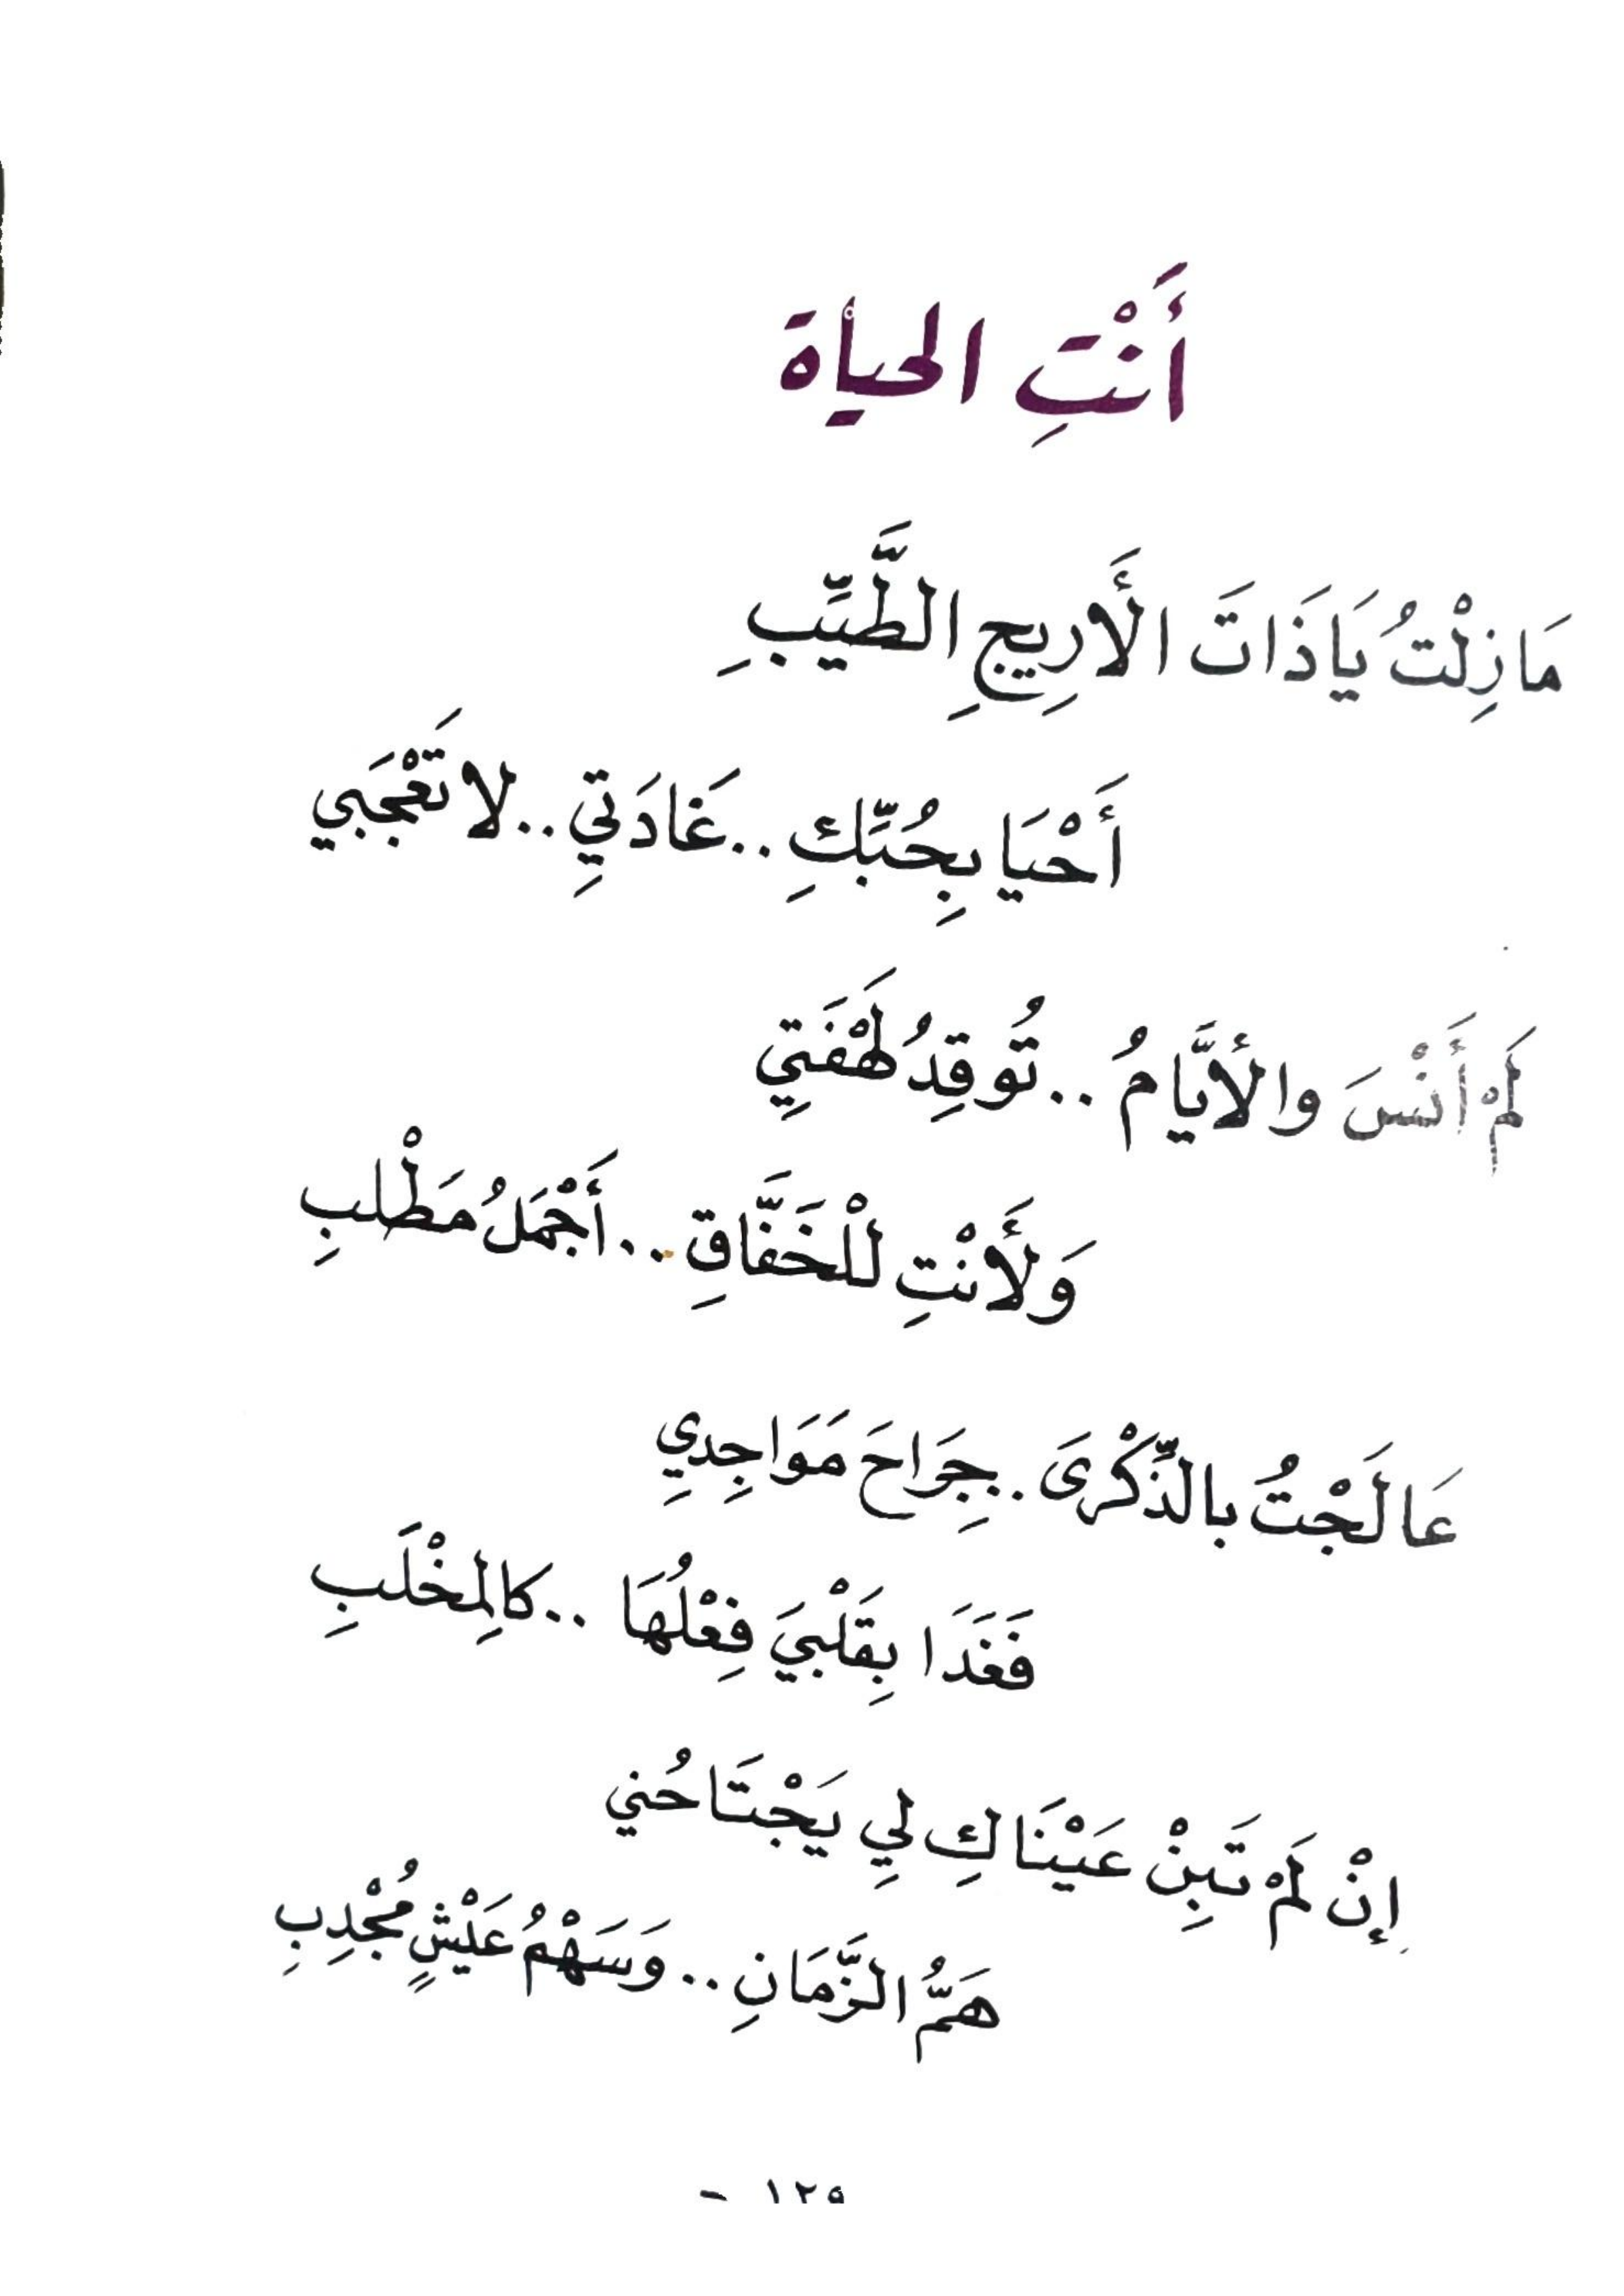 أَنْتِ الحياة
مَازِلْتُ يَاذَاتَ الأَرِيجِ الطَّيِّبِ
أَحْيَا بِحُبِّكِ..غَادَتِي..لا تَعْجَبَي
لَمْ أَنْسَ والأيَّامُ..تُوقِدُ لَهْفَتِي
وَلأَنْتِ لْلخَفَّاقِ..أَجْمَلُ مَطْلبِ
عَالَجْتُ بالذِّكْرَى..جِرَاحَ مَوَاجِدِي
فَغَدَا بِقَلْبْيَ فِعْلُهَا ..كالِمخْلَبِ
إنْ لَمْ تَبِنْ عَيْنَاكِ لِي يَجْتَاحُني
هَمُّ الزَّمَانِ..وَسَهْمُ عَيْشٍ مُجْدِبِ
١٢٩ -